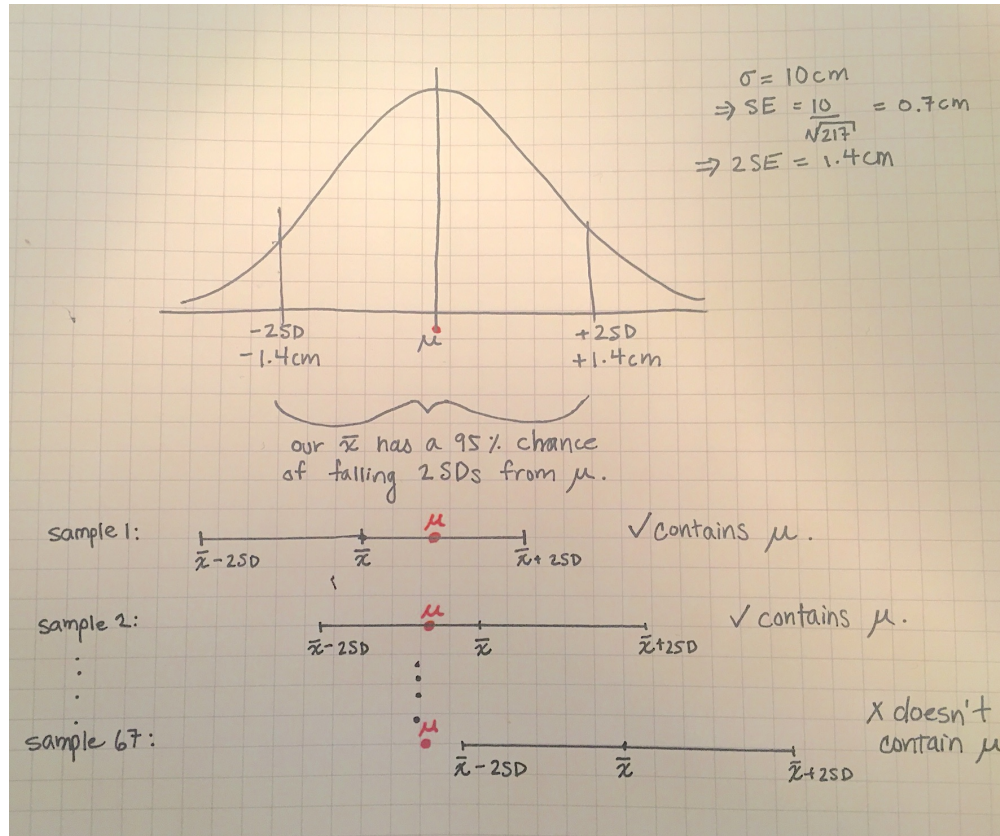 σ = 10 cm
⇒ SE = 10/√217 = 0.7cm
⇒ 2SE = 1.4cm
-2SD
-1.4cm
μ
+2SD
+1.4cm
our x̄ has a 95% chance
of falling 2SDs from μ.
sample 1:
μ
x̄-2SD
x̄
x̄+2SD
✓contains μ.
sample 2:
μ
x̄-2SD
x̄
x̄+2SD
✓ contains μ.
sample 67:
μ
x̄-2SD
x̄
x̄+2SD
X doesn't
contain μ